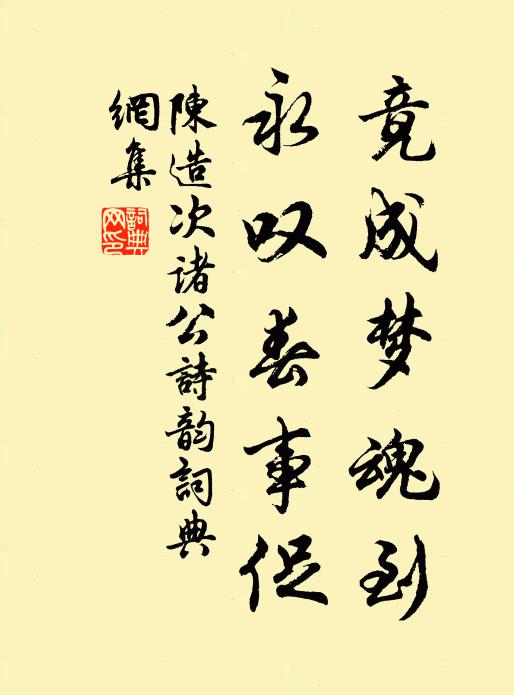 竟成梦魂到
永叹春事促
陳造次诸公詩韵詞典
網集
詞典
网印